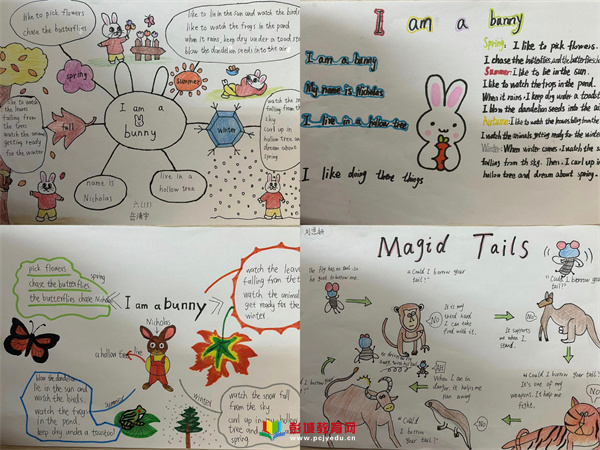 like to pick flowers
chase the butterflies
like to lie in the sun and watch the birds
like to watch the frogs in the pond
when it rains, keep dry under a toad stool
blow the dandelion seeds into the air
spring
Summer
I am a
bunny
like to
watch the
leaves
falling
from the
trees
watch the animals
getting ready
for the winter
fall
winter
watch the snow
falling from the
sky
curl up in my
hollow tree and
dream about
spring
name is
Nicholas
live in a
hollow tree
I am a bunny
I am a bunny
My name is Nicholas
I live in a hollow tree
I like doing these things
Spring: I like to pick flowers.
I chase the butterflies, and the butterflies chase
Summer: I like to lie in the sun.
I like to watch the frogs in the pond.
When it rains, I keep dry under a toadstool
I blow the dandelion seeds into the air
Autumn: I like to watch the leaves falling from the
I watch the animals getting ready for the winter
Winter: When winter comes, I watch the snow
falling from th sky. Then, I curl up in
hollow tree and dream about spring.
pick flowers
chase the butterflies
the butterflies chase Nicholas
spring
I am a bunny
Nicholas
a hollow tree
live
watch the leaves
falling from the
watch the animals
get ready for the
winter
blow the dandelion
lie in the sun and
watch the birds
watch the frogs
in the pond
keep dry under a toadstool
summer
winter
watch the snow fall
from the sky
curl up in my hollow
tree and
spring
Magid Tails
The fly has no tail so
he goes to borrow one.
"Could I borrow your
tail?"
No
It is my
third hand
I can take
food with it.
"Could I borrow your
tail?"
No
It supports
me when I
stand.
"Could I borrow your tail?"
It's one of my
weapons. It helps me
fight.
No
When I am in
danger, it helps me
run away
"Could
I borrow
your tail?"
彭城教育网
www.pcjyedu.cn